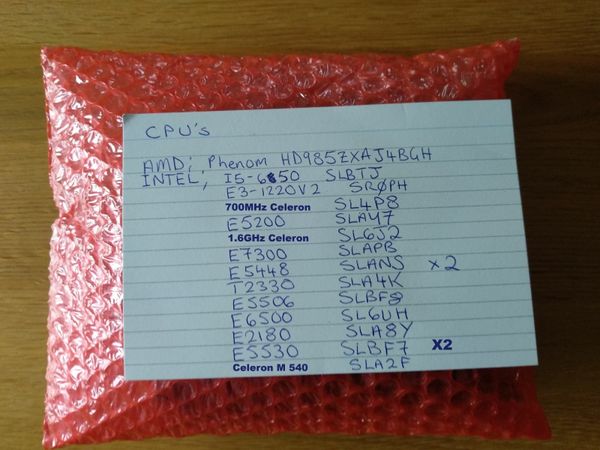 CPU's
AMD; Phenom HD985ZXAJ4BGH
INTEL; I5-650 SLBTJ
E3-1220V2 SR0PH
700MHz Celeron SL4P8
E5200 SLAY7
1.6GHz Celeron SL6J2
E7300 SLAPB
E5448 SLANS x2
T2330 SLA4K
E5506 SLBF8
E6500 SL6UH
E2180 SLA8Y
E5530 SLBF7 X2
Celeron M 540 SLA2F